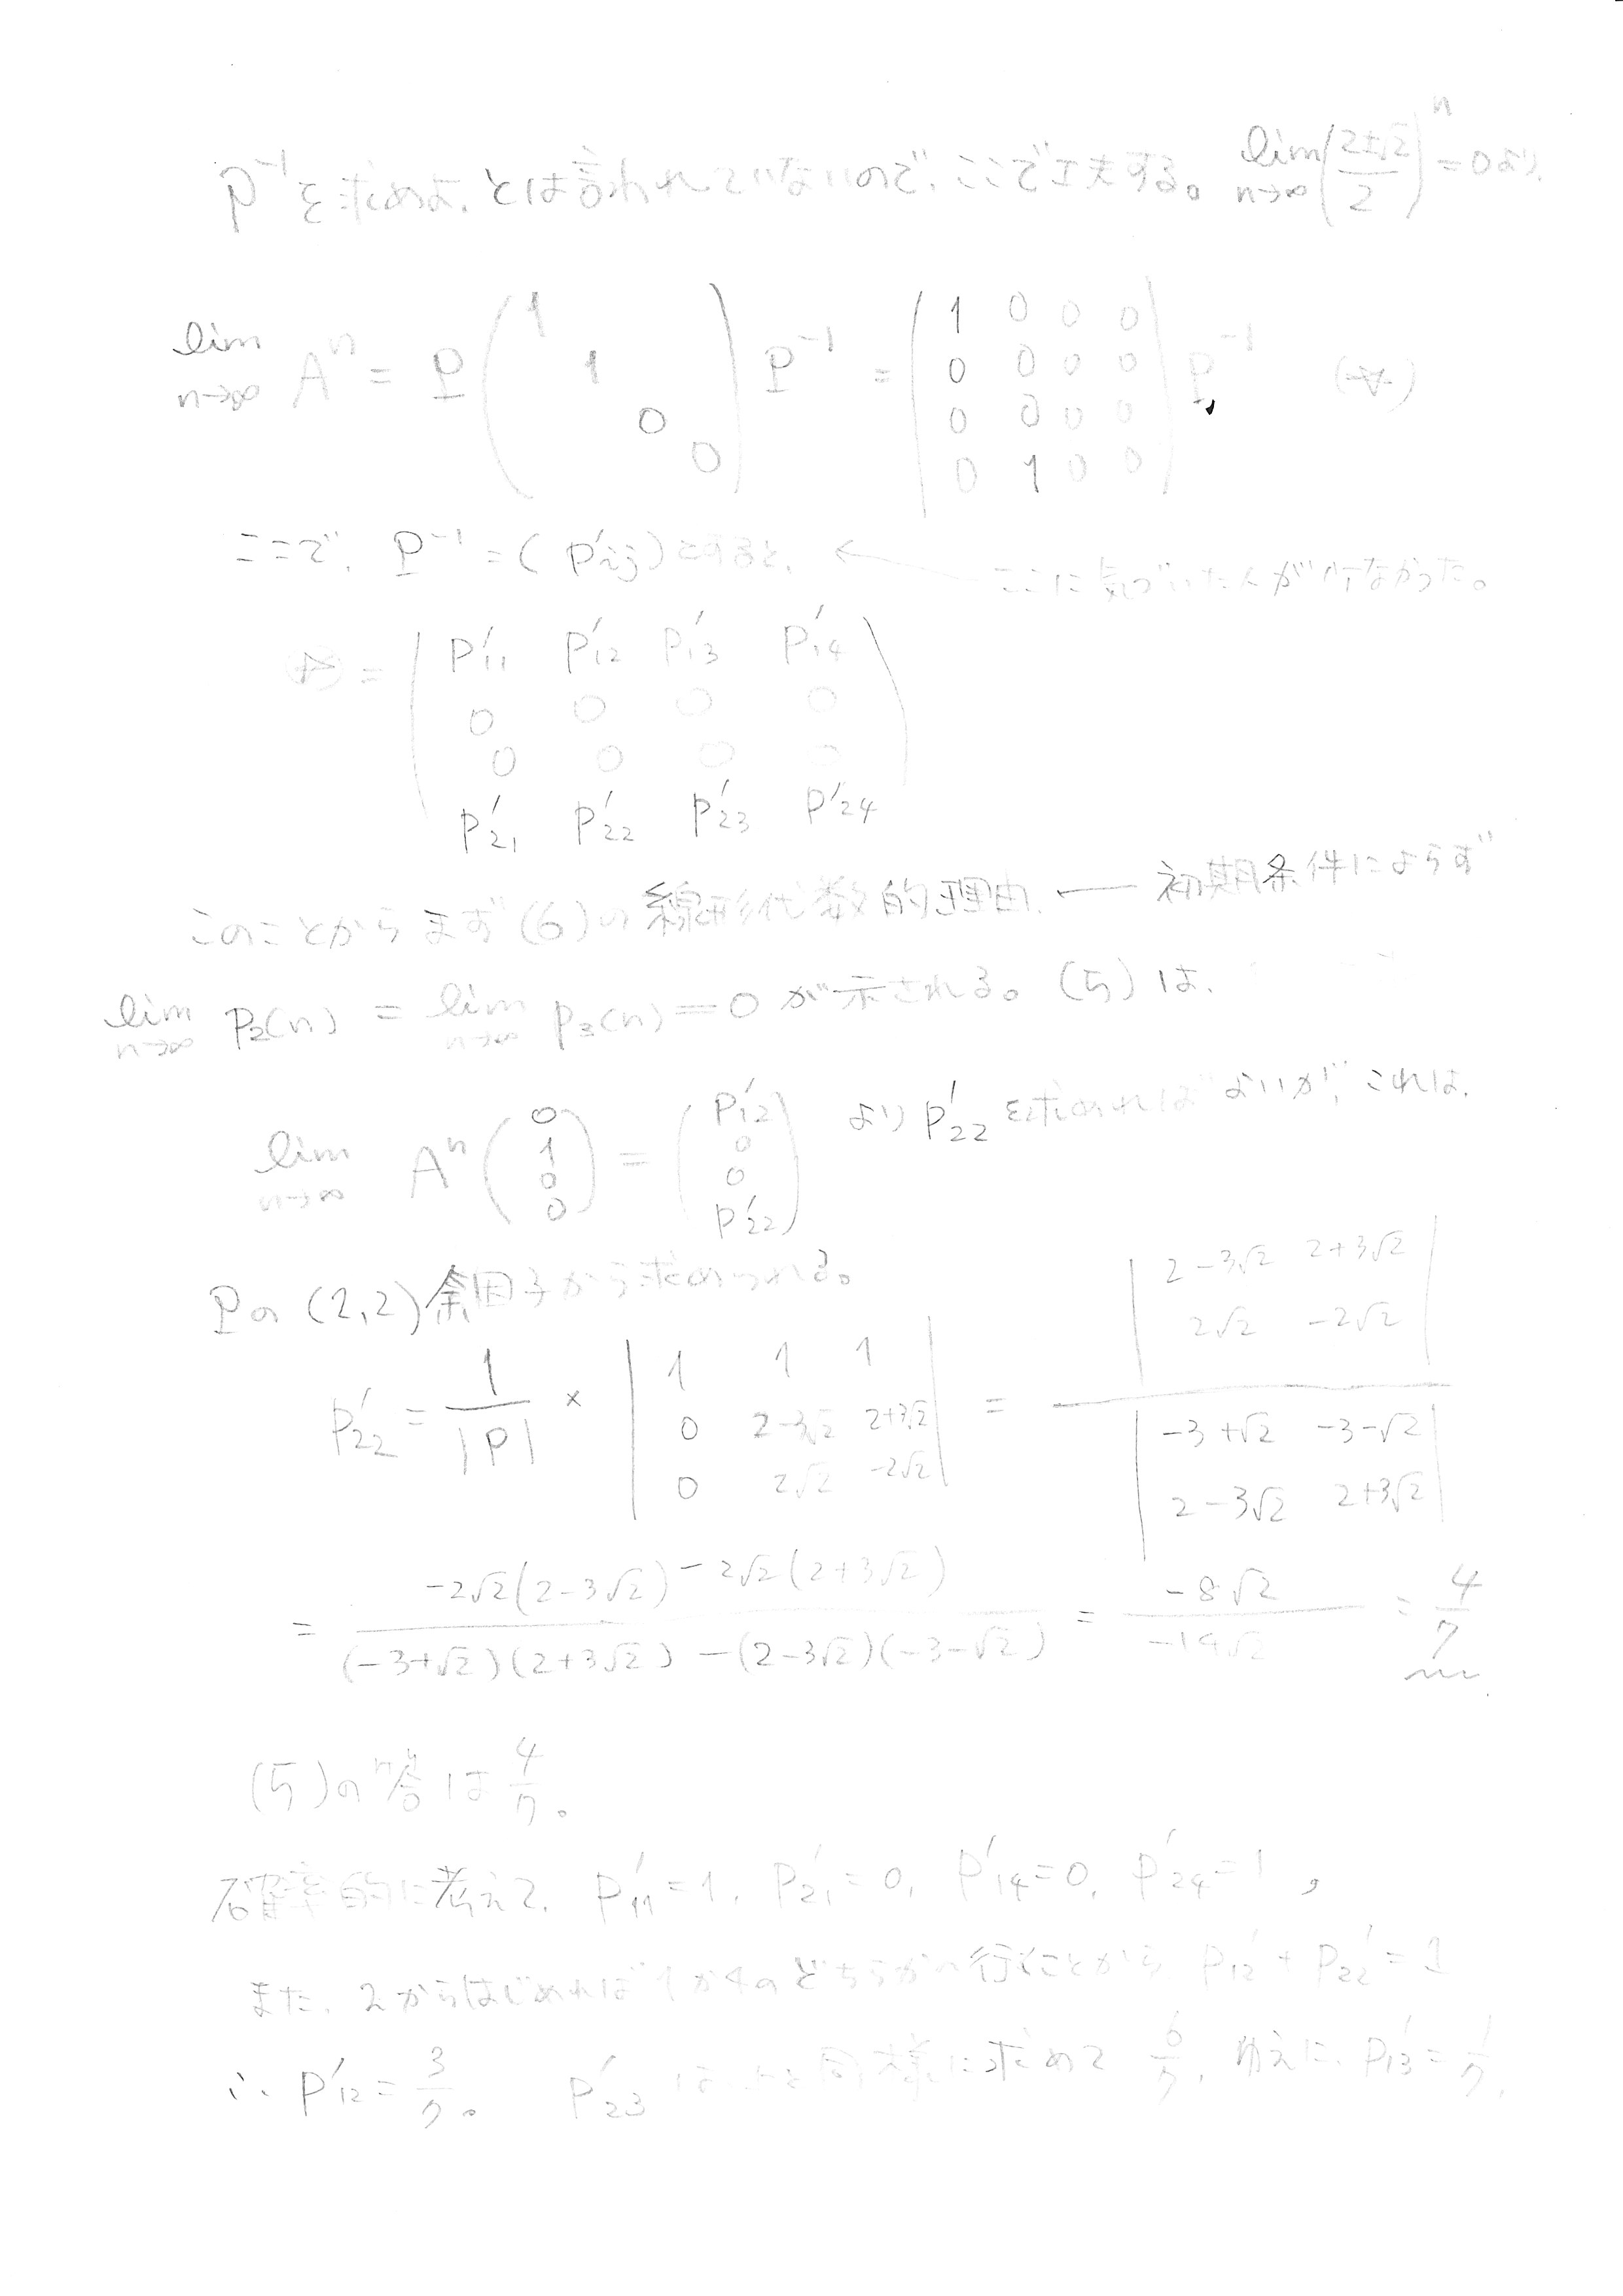 P⁻¹を求めよ、とは言われていないので、ここで工夫する。 lim_{n→∞} (2±√2 / 2)^n = 0より、
lim_{n→∞} A^n = P ( 1 1 0 0 ) P⁻¹ = ( 1 0 0 0 / 0 0 0 0 / 0 0 0 0 / 0 1 0 0 ) P⁻¹ (☆)
ここで、P⁻¹ = (p'ij) とすると、 ← ここに気づいた人が少なかった。
☆ = ( p'11 p'12 p'13 p'14
0 0 0 0
0 0 0 0
p'21 p'22 p'23 p'24 )
このことからまず(6)の線形代数的理由 ← 初期条件によらず
lim_{n→∞} p2(n) = lim_{n→∞} p3(n) = 0 が示される。(5)は、
lim_{n→∞} A^n ( 0 1 0 0 ) = ( p'12 0 0 p'22 ) より p'22 を求めればよいが、これは、
Pの(2,2)余因子から求められる。
p'22 = 1/|P| × | 1 1 1 / 0 2-3√2 2+3√2 / 0 2√2 -2√2 | = | 2-3√2 2+3√2 / 2√2 -2√2 | / | -3+√2 -3-√2 / 2-3√2 2+3√2 |
= (-2√2(2-3√2) -2√2(2+3√2)) / ((-3+√2)(2+3√2) - (2-3√2)(-3-√2)) = -8√2 / -14√2 = 4/7
(5)の答は 4/7。
確率的に考えて、p'11=1, p'21=0, p'14=0, p'24=1,
また、2からはじめれば1か4のどちらかへ行くことから p'12+p'22=1
∴ p'12=3/7。 p'23 は 同様に求めて 6/7, ゆえに、p'13=1/7,